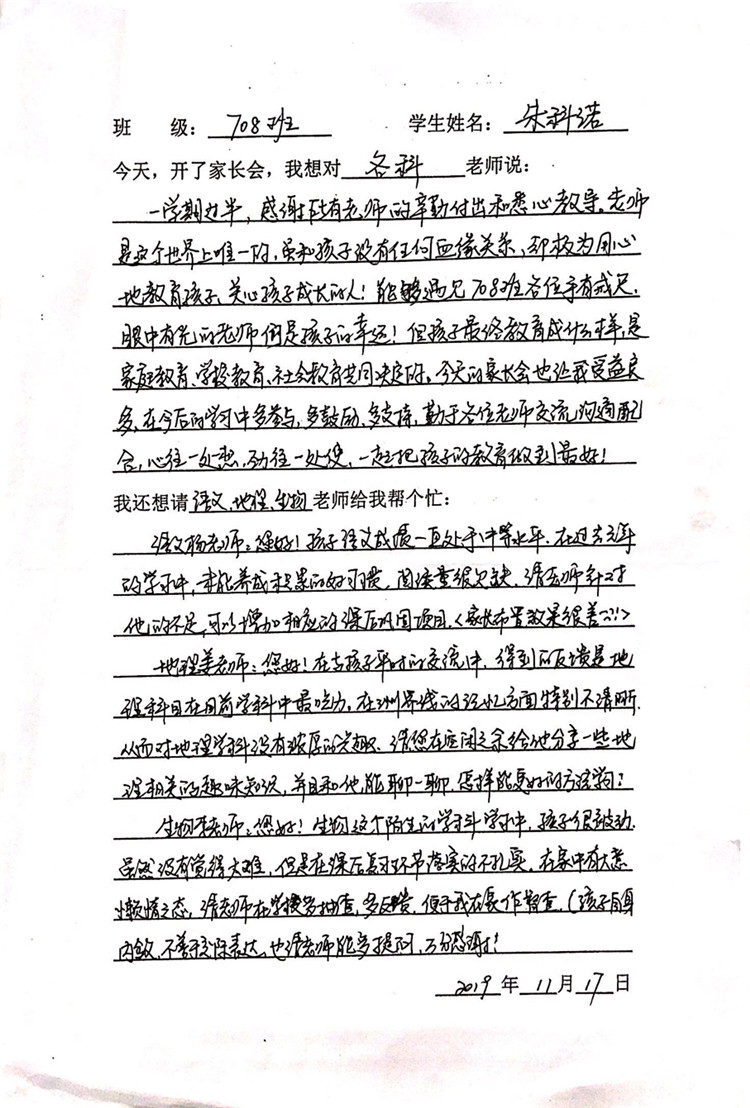 班 级：708班 学生姓名：朱科诺
今天，开了家长会，我想对 各科 老师说：
一学期过半，感谢所有老师的辛勤付出和悉心教导。老师
是这个世界上唯一的，虽和孩子没有任何血缘关系，却极为用心
地教育孩子、关心孩子成长的人！能够遇见708班各位手有戒尺，
眼中有光的老师们是孩子的幸运！但孩子最终教育成什么样，是
家庭教育、学校教育、社会教育共同决定的。今天的家长会也让我受益良
多，在今后的学习中多参与，多鼓励，多支持，勤于各位老师交流沟通配
合，心往一处想，劲往一处使，一起把孩子的教育做到最好！
我还想请 语文、地理、生物 老师给我帮个忙：
语文杨老师：您好！孩子语文成绩一直处于中等水平，在过去六年
的学习中，未能养成积累的好习惯，阅读量很欠缺，请老师针对
他的不足，可以增加相应的课后巩固项目。<家长布置效果很差>
地理姜老师：您好！在与孩子平时的交流中，得到的反馈是地
理科目在目前学科中最吃力，在洲界线的记忆方面特别不清晰，
从而对地理学科没有浓厚的兴趣。请您在空闲之余给他分享一些地
理相关的趣味知识，并且和他能聊一聊，怎样能更好的方法学习？
生物 老师：您好！生物这个陌生的学科学习中，孩子很被动，
虽然没有觉得太难，但是在课后复习环节落实的不扎实。在家中有太悉
懒惰之态，请老师在学校多抽查，多反馈，便于我在家作督查。（孩子自身
内敛，不善于 表达，也请老师能多提问，万分感谢！
2019年11月17日